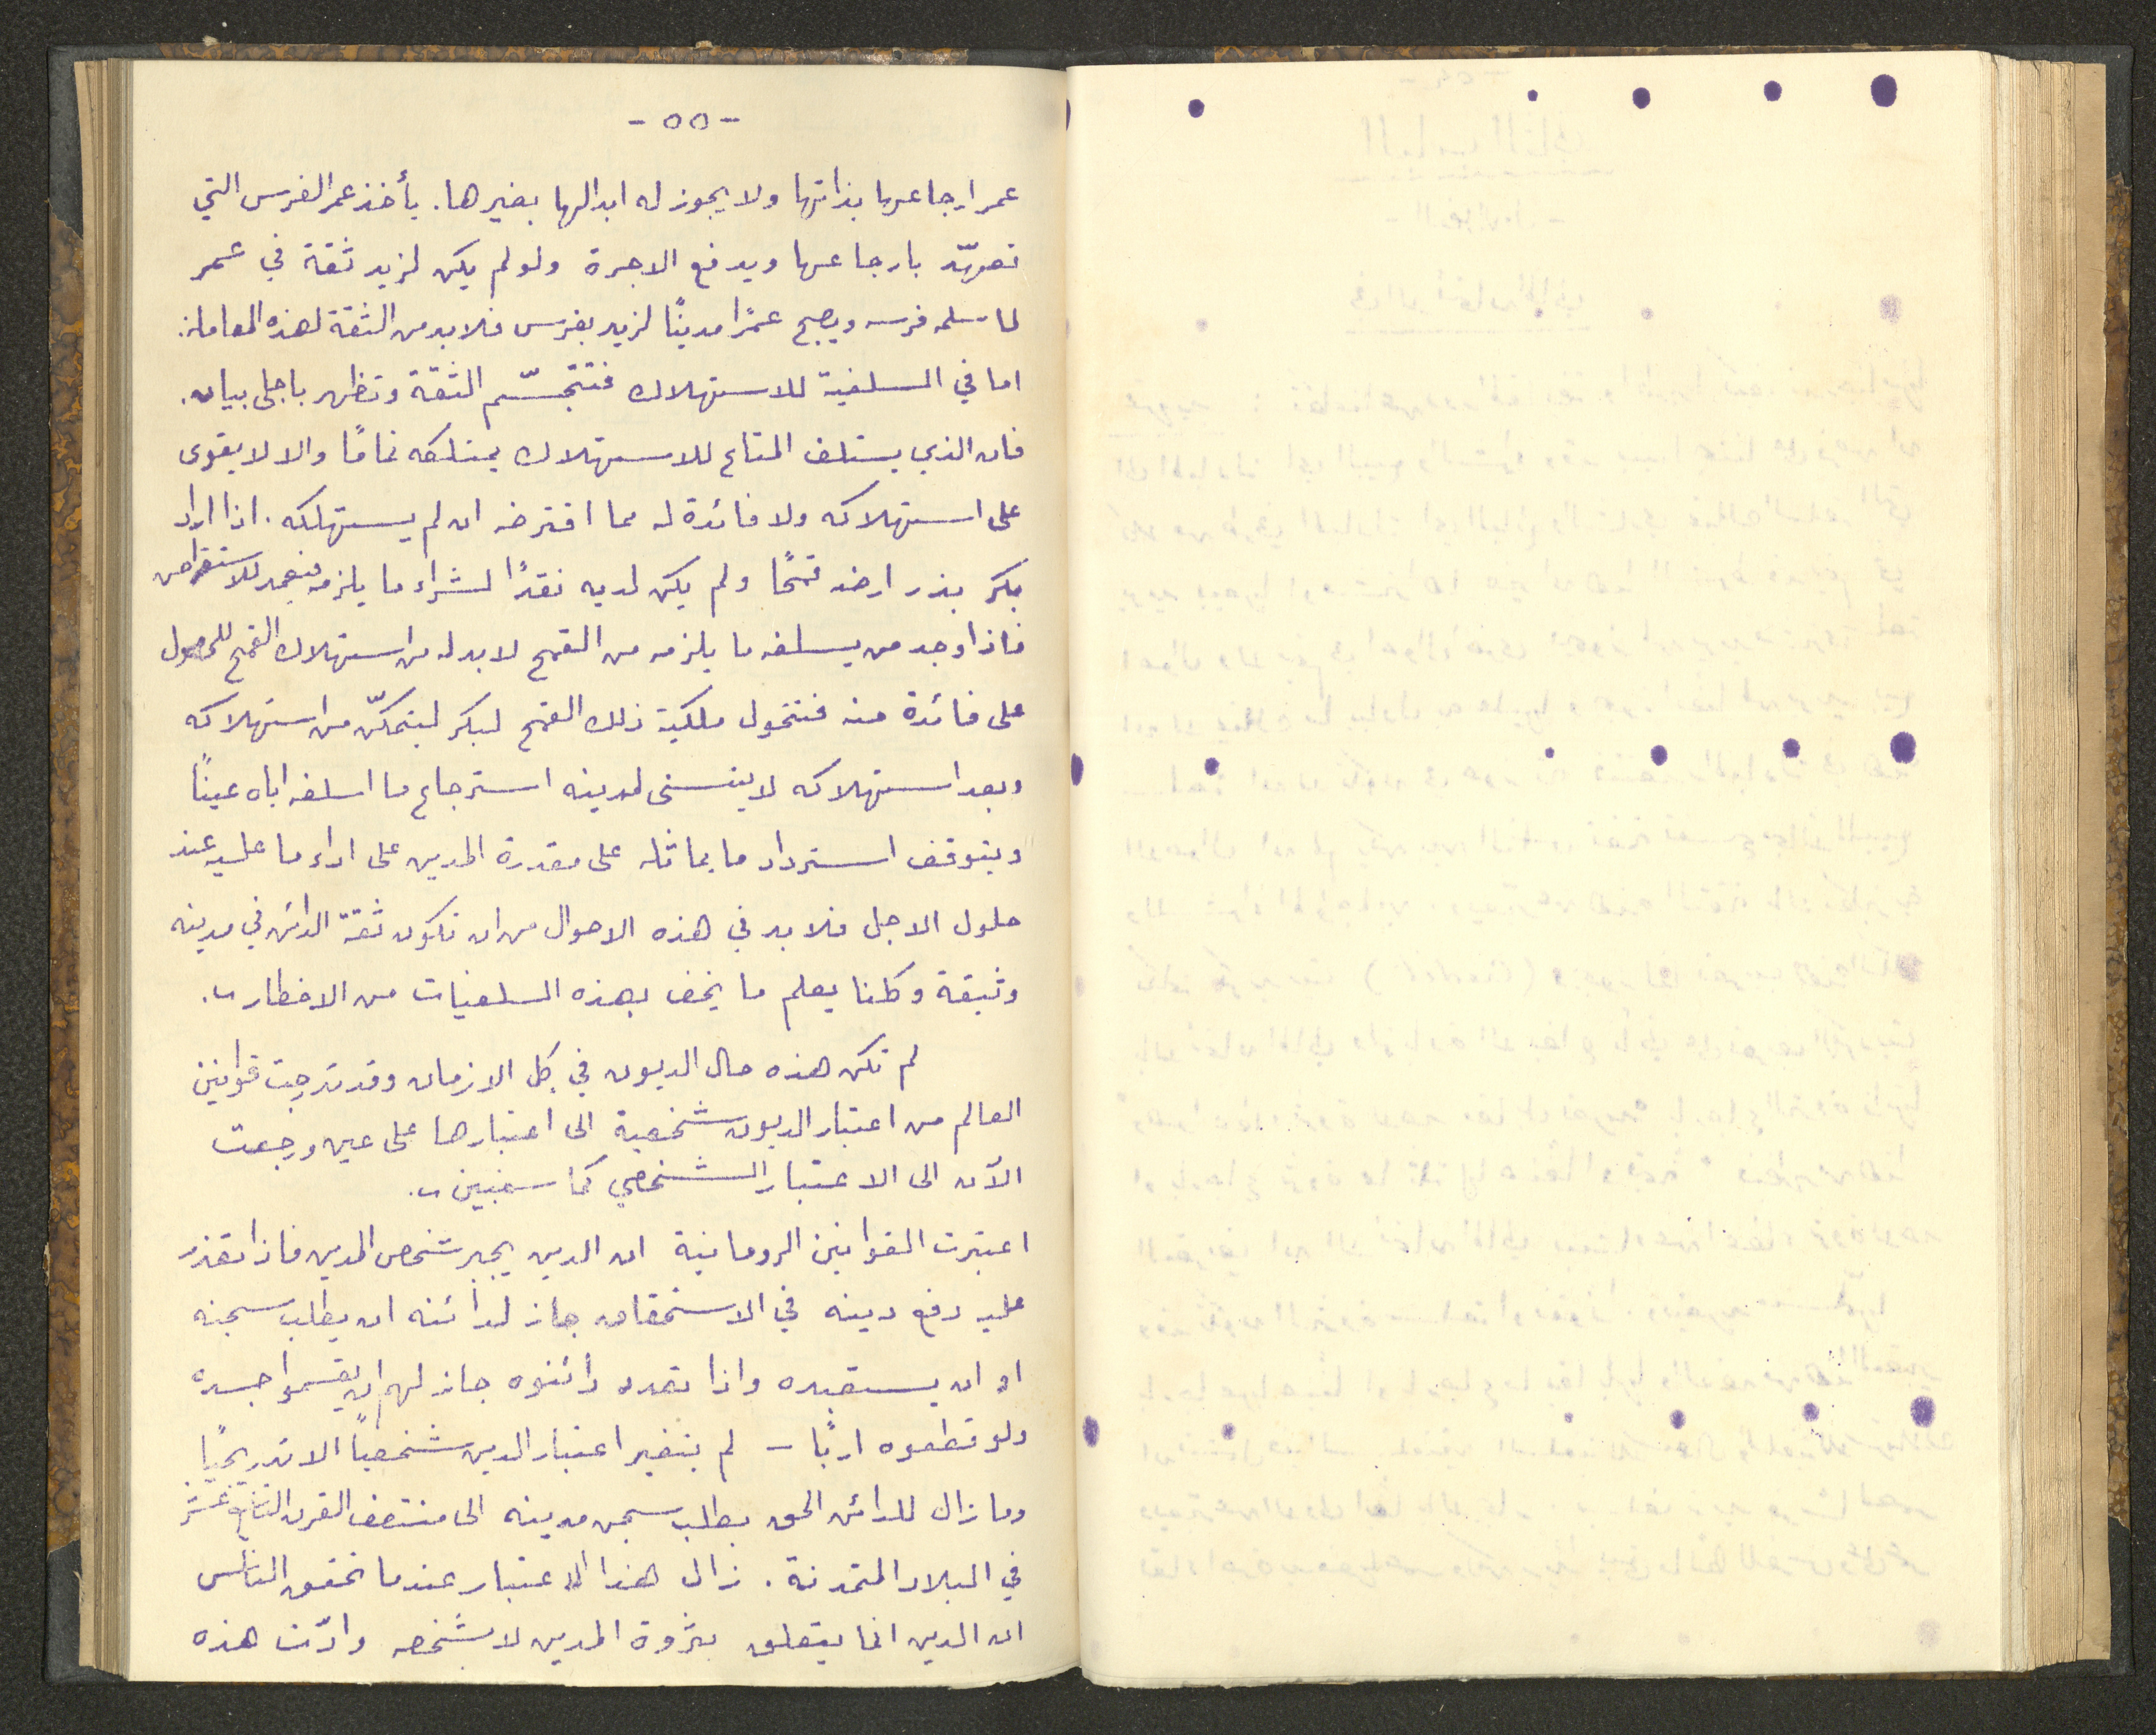 - ٥٥ -
عمر ارجاعها بذاتها ولا يجوز له ابدالها بغيرها. يأخذ عمر الفرس التي
تعهّد بارجاعها ويدفع الاجرة ولو لم يكن لزيد ثقة في عمر
لما سلمه فرسه ويصبح عمرًا مدينًا لزيد بفرس فلا بد من الثقة لهذه المعاملة.
اما في السلفية للاستهلاك فتتجسّم الثقة وتظهر باجلى بيان.
فان الذي يستلف المتاع للاستهلاك يمتلكه تمامًا والا لا يقوى
على استهلاكه ولا فائدة له مما اقترضه ان لم يستهلكه. اذا اراد
بكر بذر ارضه قمحًا ولم يكن لديه نقدًا لشراء ما يلزمه فيعمد للاستقراض
فاذا وجد من يسلفه ما يلزمه من القمح لا بد له من استهلاك القمح للحصول
على فائدة منه فتتحول ملكية ذلك القمح لبكر ليتمكّن من استهلاكه
وبعد استهلاكه لا يتسنى لمدينه استرجاع ما اسلفه اياه عينًا
ويتوقف استرداد ما يماثله على مقدرة المدين على اداء ما عليه عند
حلول الاجل فلا بد في هذه الاحوال من ان تكون ثقة الدائن في مدينه
وثيقة وكلنا يعلم ما يحف بهذه السلفيات من الاخطار.
لم تكن هذه حال الديون في كل الازمان وقد تدرجت قوانين
العالم من اعتبار الديون شخصية الى اعتبارها على عين ورجعت
الآن الى الاعتبار الشخصي كما سنبين.
اعتبرت القوانين الرومانية ان الدين يجبر شخص المدين فاذا تعذر
عليه دفع دينه في الاستحقاق جاز لدائنه ان يطلب سجنه
او ان يستعبده واذا تعدد دائنوه جاز لهم ان يقسموا جسده
ولو قطعوه اربًا - لم يتغير اعتبار الدين شخصيًا الا تدريجيًا
وما زال للدائن الحق بطلب سجن مدينه الى منتصف القرن التاسع عشر
في البلاد المتمدنة. زال هذا الاعتبار عندما تحقق الناس
ان الدين انما يتعلق بثروة المدين لا بشخصه وادّت هذه